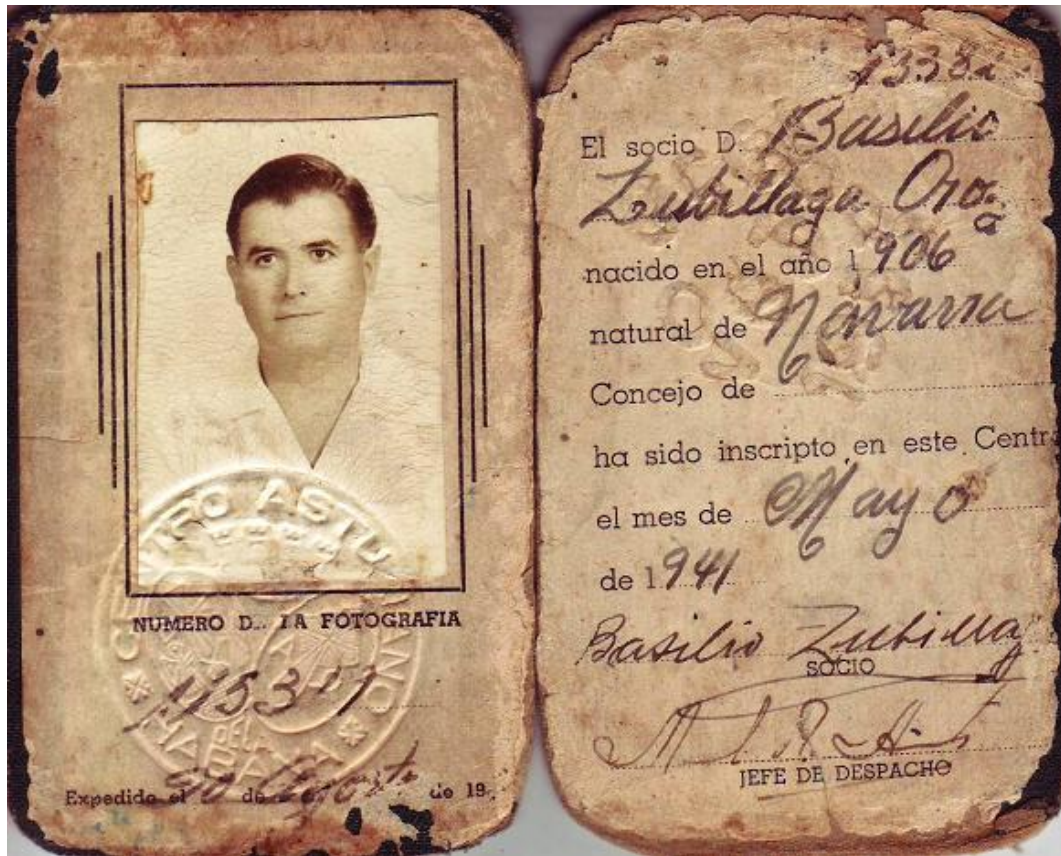 CENTRO ASTURIANO
DE LA
HABANA
NUMERO D.. LA FOTOGRAFIA
Expedido el de Agosto de 19
El socio D. Basilio
Zubillaga Oroa
nacido en el año 1906
natural de Navarra
Concejo de
ha sido inscripto en este Centr
el mes de Mayo
de 1941
Basilio Zubillaga
SOCIO
JEFE DE DESPACHO